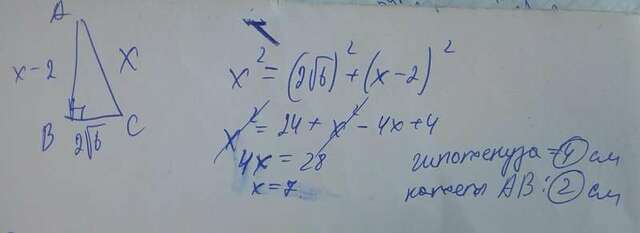 A
x-2
x
B
C
2√6
x² = (2√6)² + (x-2)²
x² = 24 + x² - 4x + 4
4x = 28
x = 7
гипотенуза = 4 см
катеты AB: 2 см